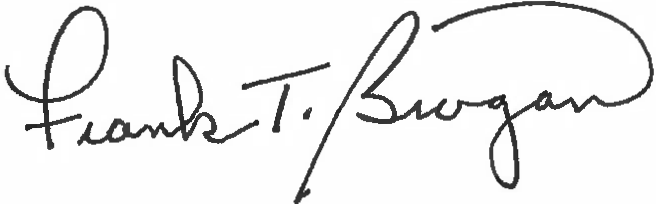 Frank T. Brogan